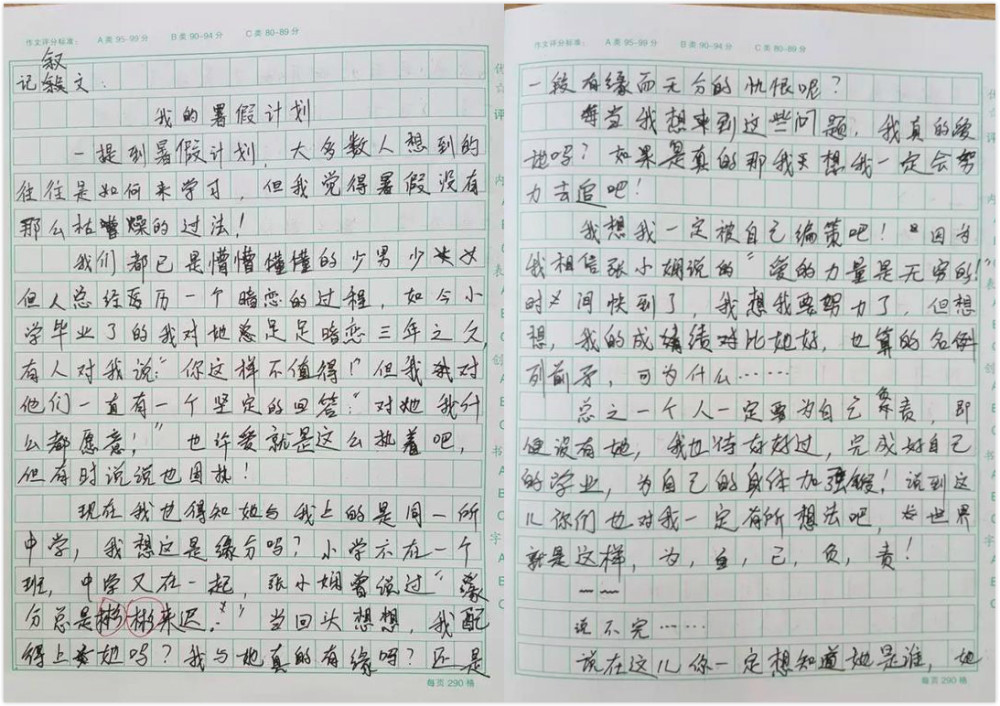 作文评分标准： A类 95-99分 B类 90-94分 C类 80-89分
记叙文：
我的暑假计划
一提到暑假计划，大多数人想到的
往往是如何来学习，但我觉得暑假没有
那么枯燥的过法！
我们都已是懵懵懂懂的少男少女
但人总经历一个暗恋的过程，如今小
学毕业了的我对她足足暗恋三年之久，
有人对我说：“你这样不值得！”但我对
他们一直有一个坚定的回答：“对她我什
么都愿意！”也许爱就是这么执着吧，
但有时说说也固执！
现在我也得知她与我上的是同一所
中学，我想这是缘分吗？小学不在一个
班，中学又在一起，张小娴曾说过“缘
分总是彬彬来迟．”当回头想想，我配
得上她吗？我与她真的有缘吗？还是
每页 290 格
作文评分标准： A类 95-99分 B类 90-94分 C类 80-89分
一段有缘而无分的忧恨呢？
每当我想到这些问题，我真的爱
她吗？如果是真的那我想我一定会努
力去追吧！
我想我一定被自己编策吧！因为
我相信张小娴说的“爱的力量是无穷的！”
时间快到了，我想我要努力了，但想
想，我的成绩对比她好，也算的名列
列前矛，可为什么……
总之一个人一定要为自己负责，即
便没有她，我也待好好过，完成好自己
的学业，为自己的身体加强锻！说到这
儿你们也对我一定有所想法吧，世界
就是这样，为，自，己，负，责！
~~
说不完……
说在这儿你一定想知道她是谁，她
每页 290 格